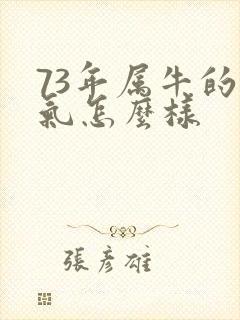 73年属牛的
氣怎麼樣
張彥雄